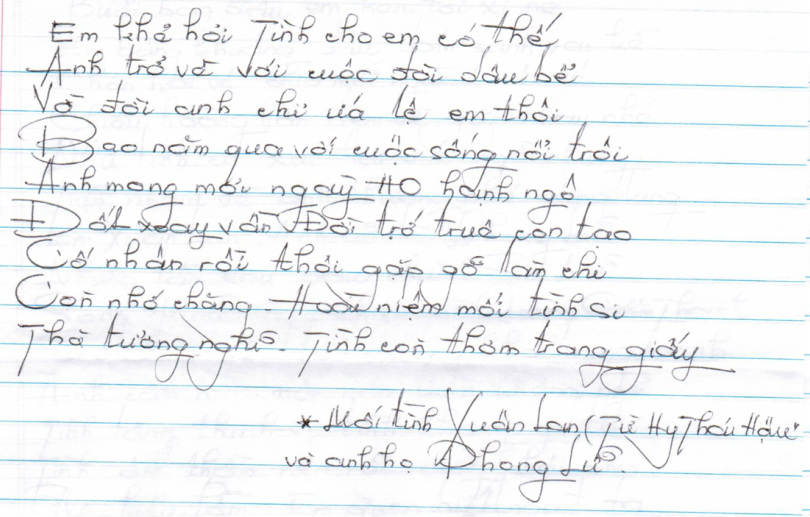 Em khả hỏi Tình cho em có thế
Anh trở về với cuộc đời dâu bể
Vỡ đời anh chỉ vá lệ em thôi
Bao năm qua với cuộc sống nổi trôi
Anh mong mỏi ngày HO hạnh ngộ
Đất xoay vần Đời trớ trêu con tạo
Cố nhân rồi thôi gặp gỡ làm chi
Còn nhớ chăng Hoài niệm mối tình si
Thà tưởng nghĩ. Tình còn thơm trang giấy
* Mối tình Xuân Lan (Từ Hy Thái Hậu)
và anh họ Phong Lữ.